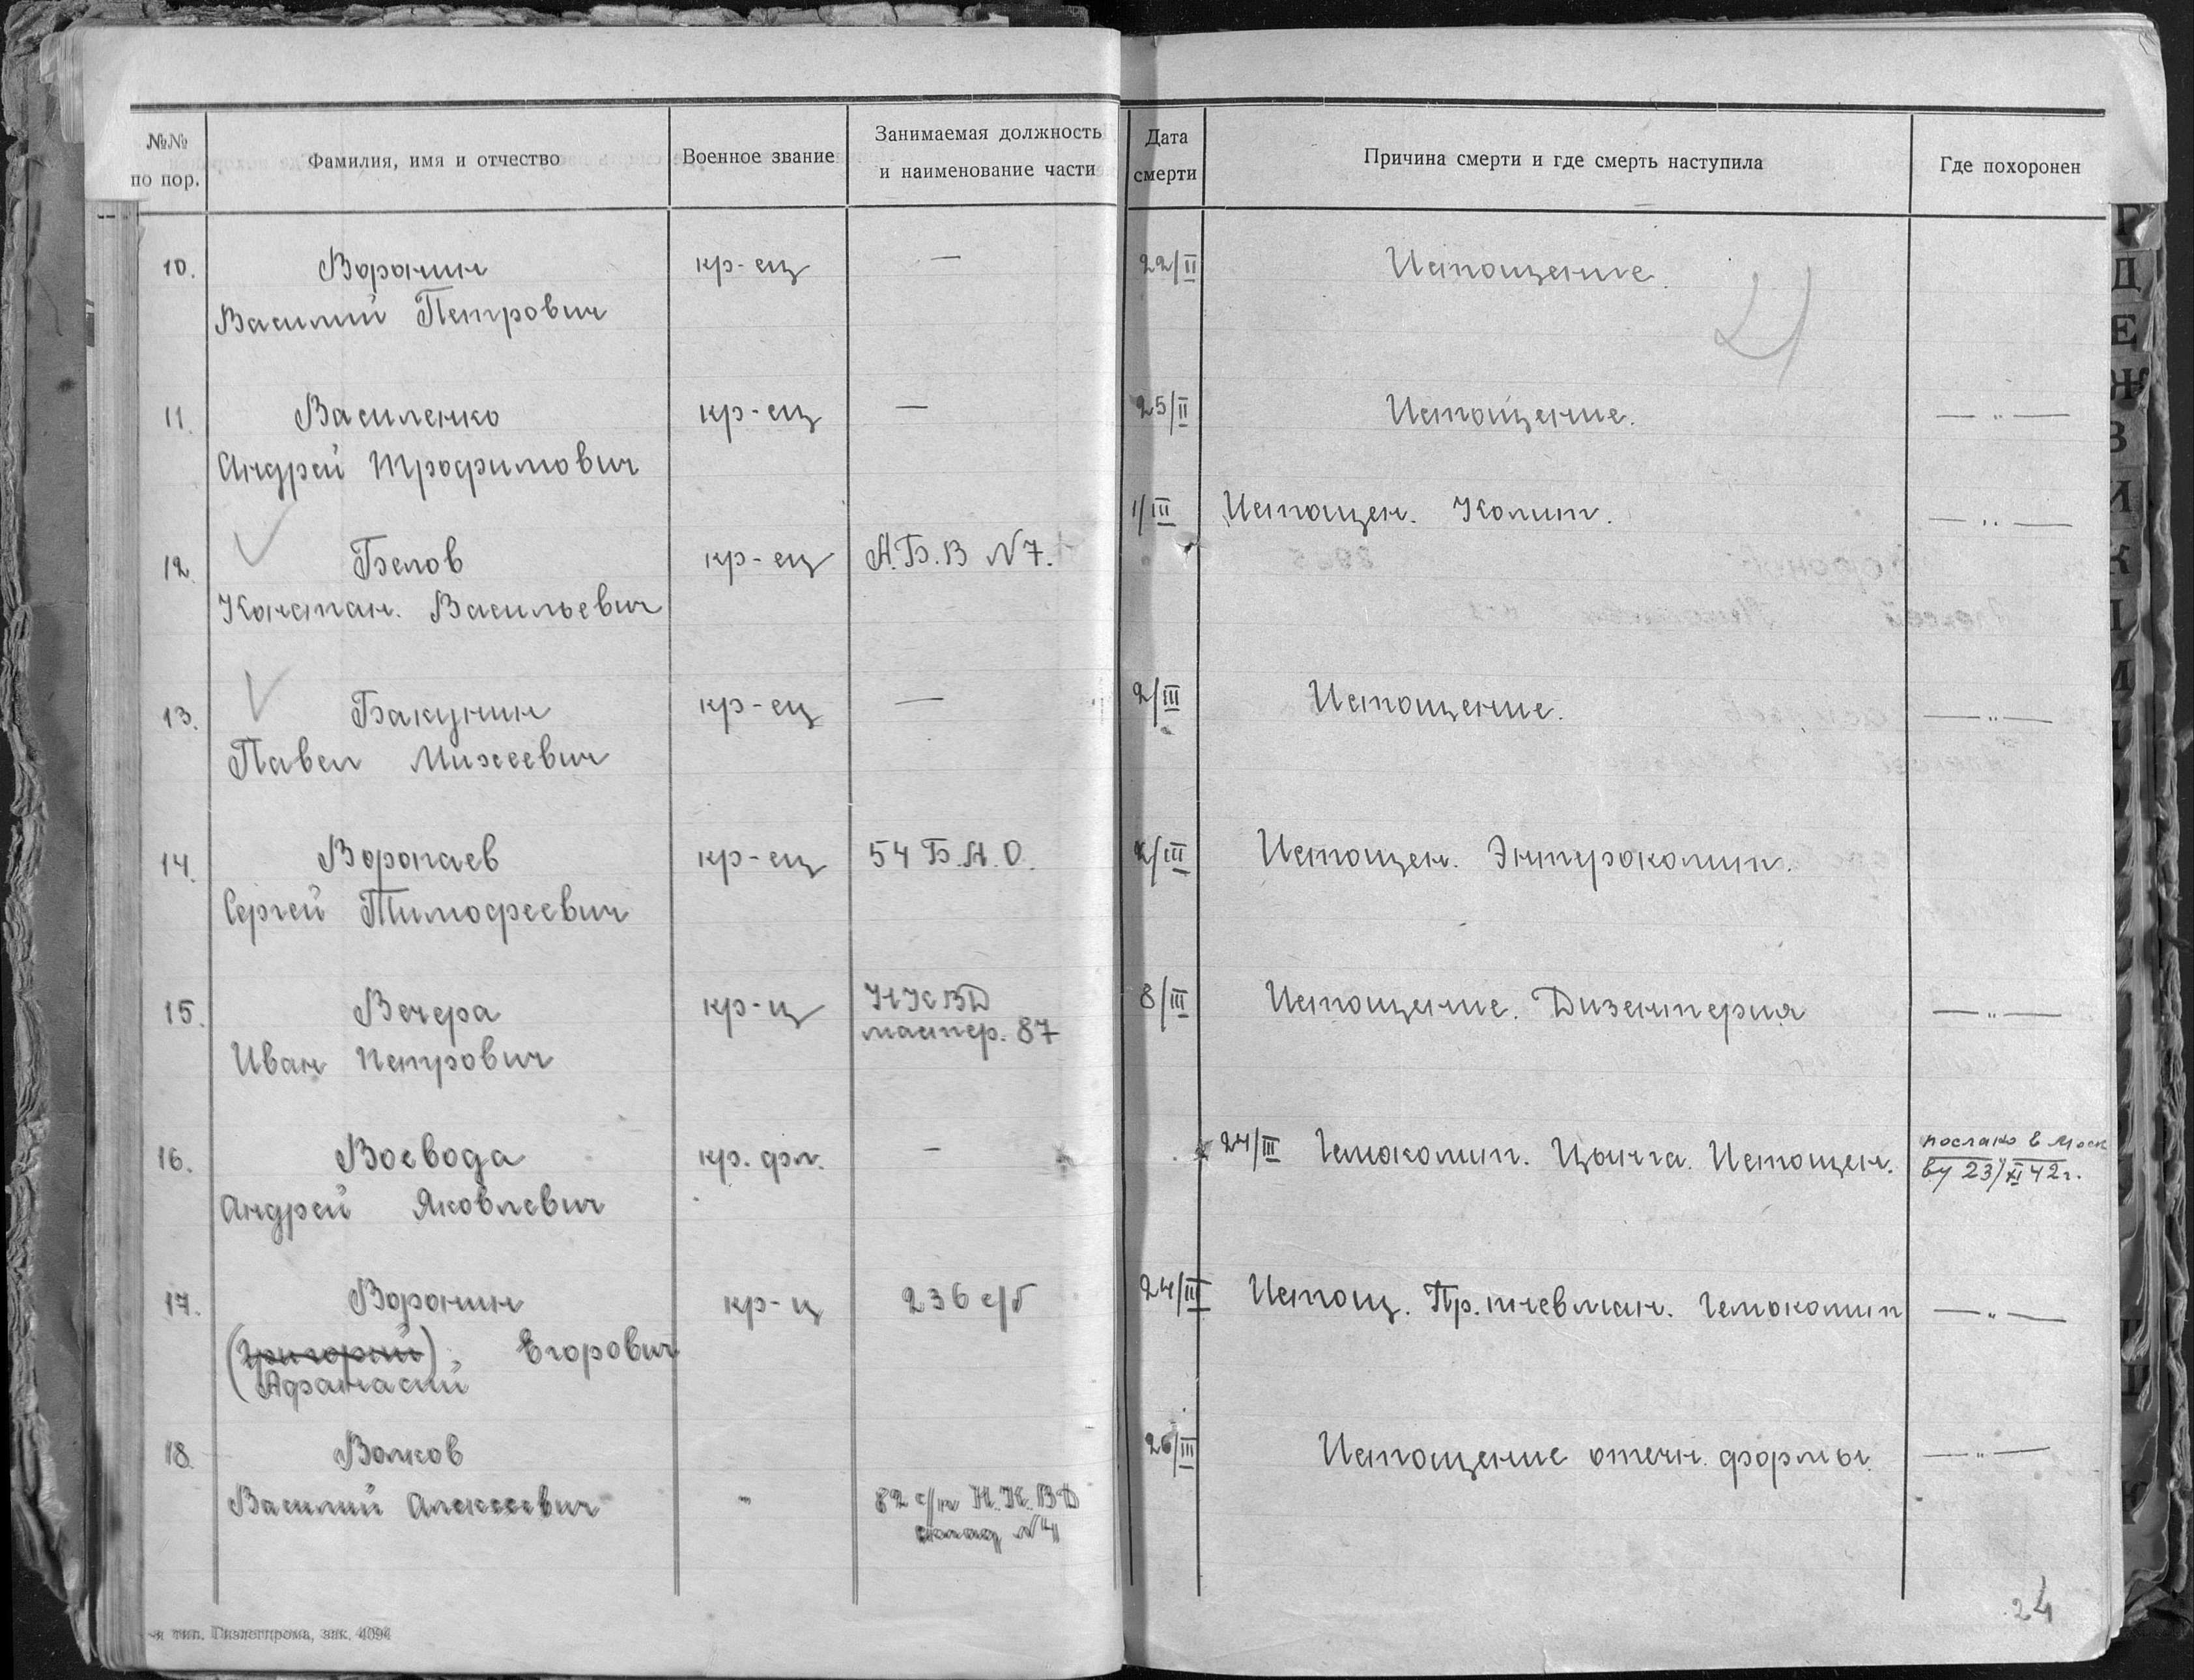 №№ по пор.
Фамилия, имя и отчество
Военное звание
Занимаемая должность и наименование части
Дата смерти
Причина смерти и где смерть наступила
Где похоронен
10. Воронин кр-ец — 22/II Истощение.
Василий Петрович
11. Василенко кр-ец — 25/II Истощение. — " —
Андрей Трофимович
1/III Истощен. Колит. — " —
12. Белов кр-ец А.Б.В N7.
Констан. Васильевич
13. Бакунин кр-ец — 2/III Истощение. — " —
Павел Михеевич
14. Воропаев кр-ец 54 Б.А.О. 2/III Истощен. Энтероколит.
Сергей Тимофеевич
15. Вечера кр-ц НКВД 8/III Истощение. Дизентерия — " —
мастер. 87
Иван Петрович
16. Воевода кр. фл. — 24/III Гемоколит. Цынга. Истощен. послано в Моск
ву 23/XI 42г.
Андрей Яковлевич
17. Воронин кр-ц 236 с/б 24/III Истощ. Пр. пневман. Гемоколит — " —
(Григорий). Егорович
Афанасий
18. Волков 26/III Истощение отечн. формы. — " —
Василий Алексеевич " 82 с/п Н.К.ВД
склад N4
тип. Гизлегпрома, зак. 4094
24